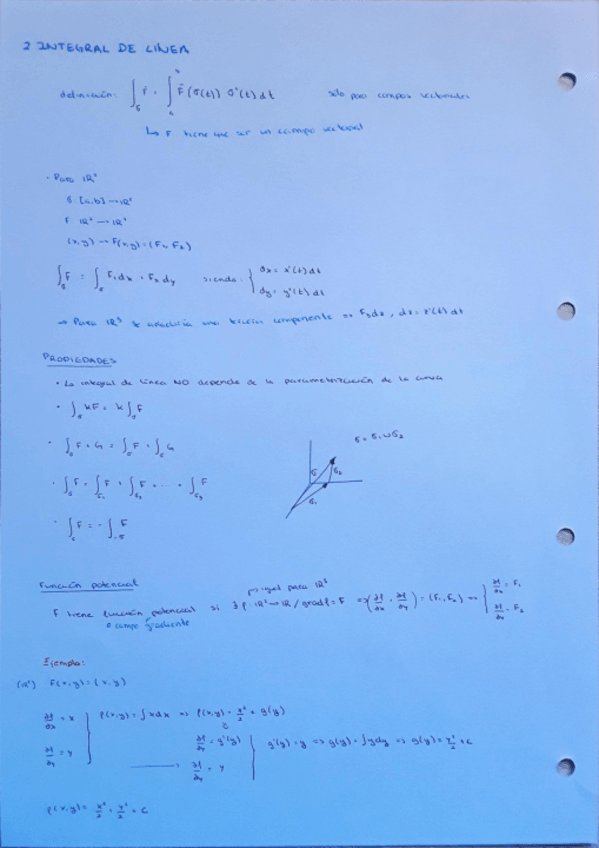 2 INTEGRAL DE LÍNEA
definición: ∫_σ F = ∫_a^b F̄(σ(t)) σ'(t) dt solo para campos vectoriales
↳ F tiene que ser un campo vectorial
· Para ℝ²
σ [a,b] → ℝ²
F ℝ² → ℝ²
(x,y) → F(x,y) = (F₁, F₂)
∫_σ F = ∫_σ F₁dx + F₂dy siendo: { dx = x'(t) dt
dy = y'(t) dt
→ Para ℝ³ se añadiría una tercera componente => F₃dz, dz = z'(t) dt
PROPIEDADES
· La integral de línea NO depende de la parametrización de la curva
· ∫_σ kF = k∫_σ F
· ∫_σ F + G = ∫_σ F + ∫_σ G
σ = σ₁ ∪ σ₂
σ σ₂
σ₁
· ∫_σ F = ∫_σ₁ F + ∫_σ₂ F + ... + ∫_σ₃ F
· ∫_σ F = - ∫_-σ F
Función potencial
igual para ℝ³
F tiene función potencial si ∃ f: ℝ² → ℝ / grad f = F => (∂f/∂x, ∂f/∂y) = (F₁, F₂) => { ∂f/∂x = F₁
∂f/∂y = F₂
o campo gradiente
Ejemplo:
(ℝ²) F(x,y) = (x,y)
∂f/∂x = x } f(x,y) = ∫xdx => f(x,y) = x²/2 + g(y)
∂f/∂y = g'(y) } g'(y) = y => g(y) = ∫ydy => g(y) = y²/2 + C
∂f/∂y = y → ∂f/∂y = y
f(x,y) = x²/2 + y²/2 + C